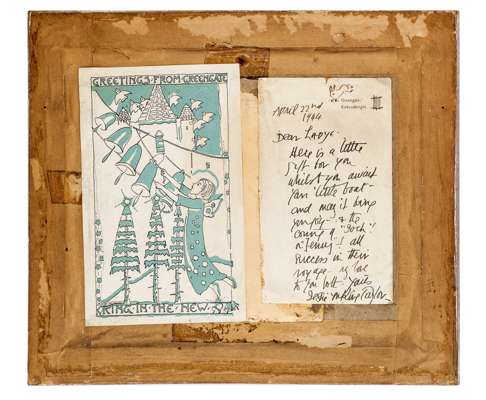 GREETINGS·FROM·GREENGATE
RING·IN·THE·NEW
Kirkcudbright
April 22nd
1944
Dear Ladye.
Here is a little
gift for you
whilst you await
your little boat -
and may it bring
you joy & the
coming of "Jock"!
all
success in their
voyage. my love
to you both. Yours
Taylor